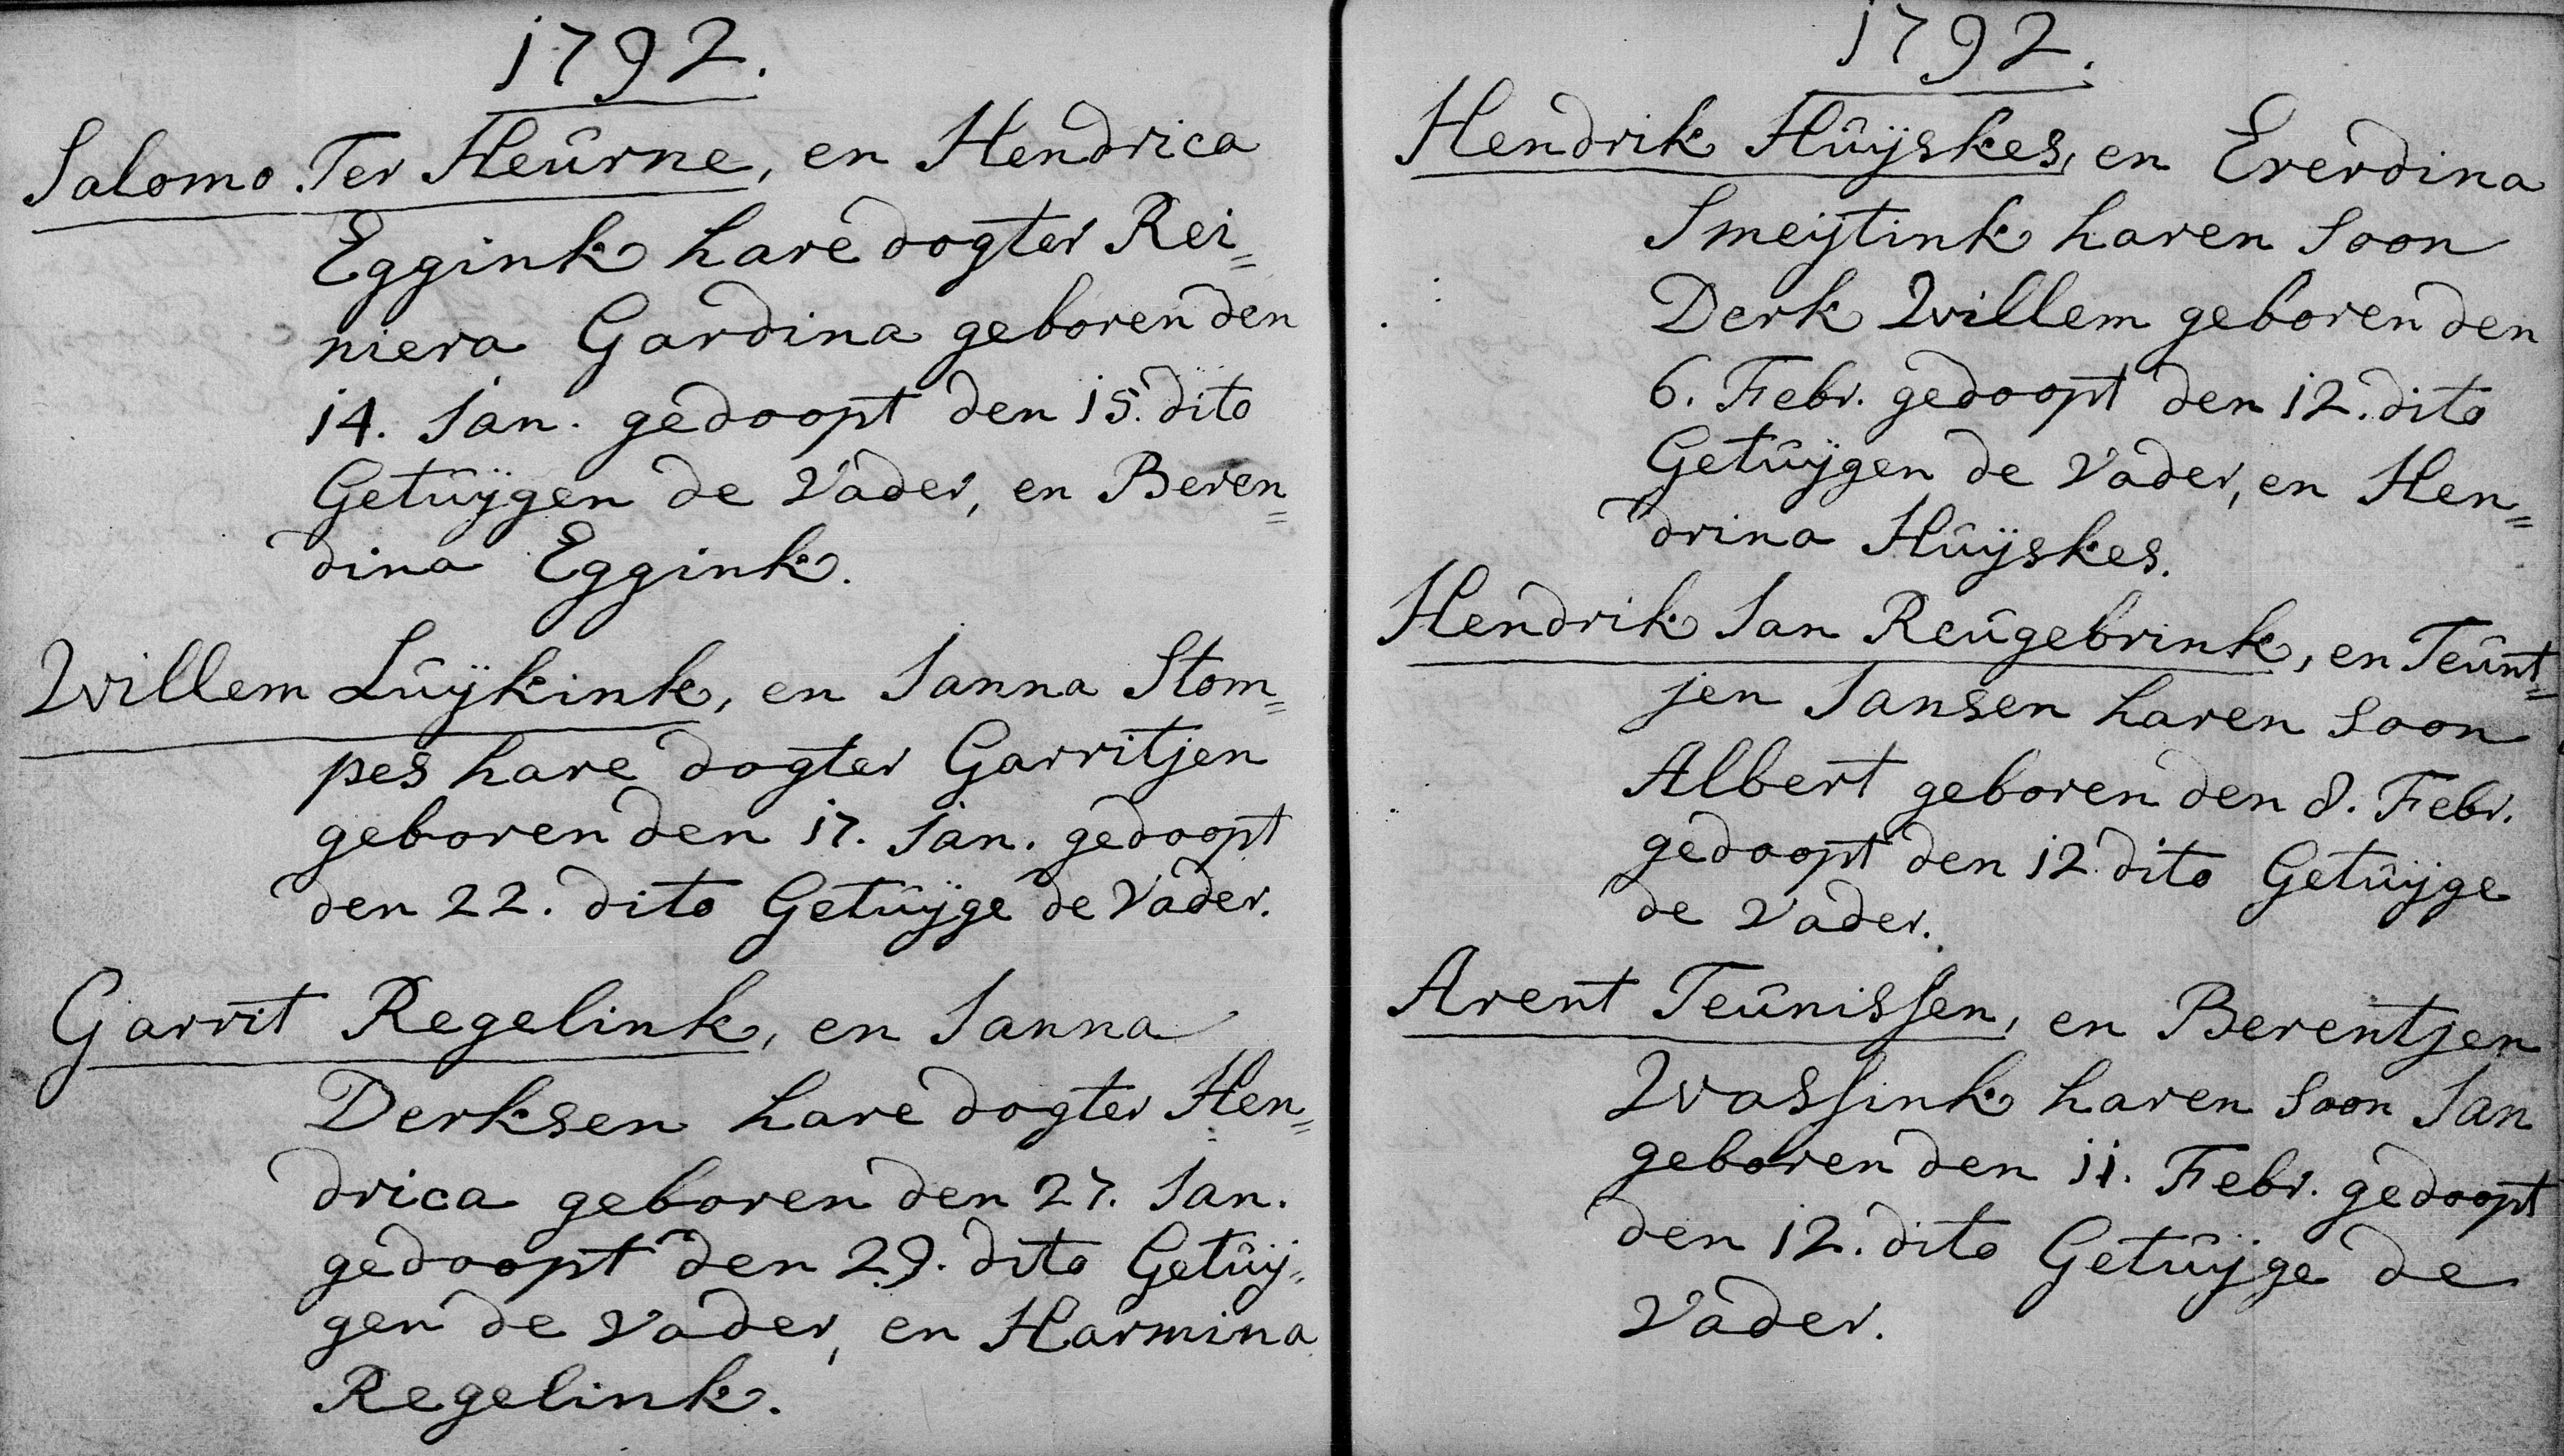 1792.
Salomo Ter Heûrne, en Hendrica
Eggink hare dogter Rei=
niera Gardina geboren den
14. Jan. gedoopt den 15. dito
Getûÿgen de Vader, en Beren=
dina Eggink.
Willem Lûÿkink, en Janna Stom=
pes hare dogter Garritjen
geboren den 17. Jan. gedoopt
den 22. dito Getûÿge de Vader.
Garrit Regelink, en Janna
Derksen hare dogter Hen=
drica geboren den 27. Jan.
gedoopt den 29. dito Getûÿ=
gen de Vader, en Harmina
Regelink.
1792.
Hendrik Hûÿskes, en Ererdina
Smeÿtink haren soon
Derk Willem geboren den
6. Febr. gedoopt den 12. dito
Getûÿgen de Vader, en Hen=
drina Hûÿskes.
Hendrik Jan Reûgebrink, en Teûnt=
jen Jansen haren soon
Albert geboren den 8. Febr.
gedoopt den 12. dito Getûÿge
de Vader.
Arent Teûnissen, en Berentjen
Wassink haren soon Jan
geboren den 11. Febr. gedoopt
den 12. dito Getûÿge de
Vader.